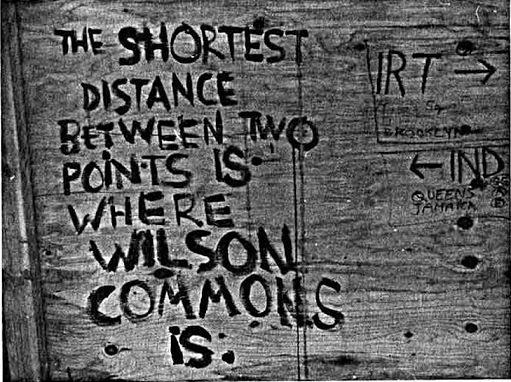 THE SHORTEST
DISTANCE
BETWEEN TWO
POINTS IS
WHERE
WILSON
COMMONS
IS.
IRT →
BROOKLYN
← IND
QUEENS
JAMAICA